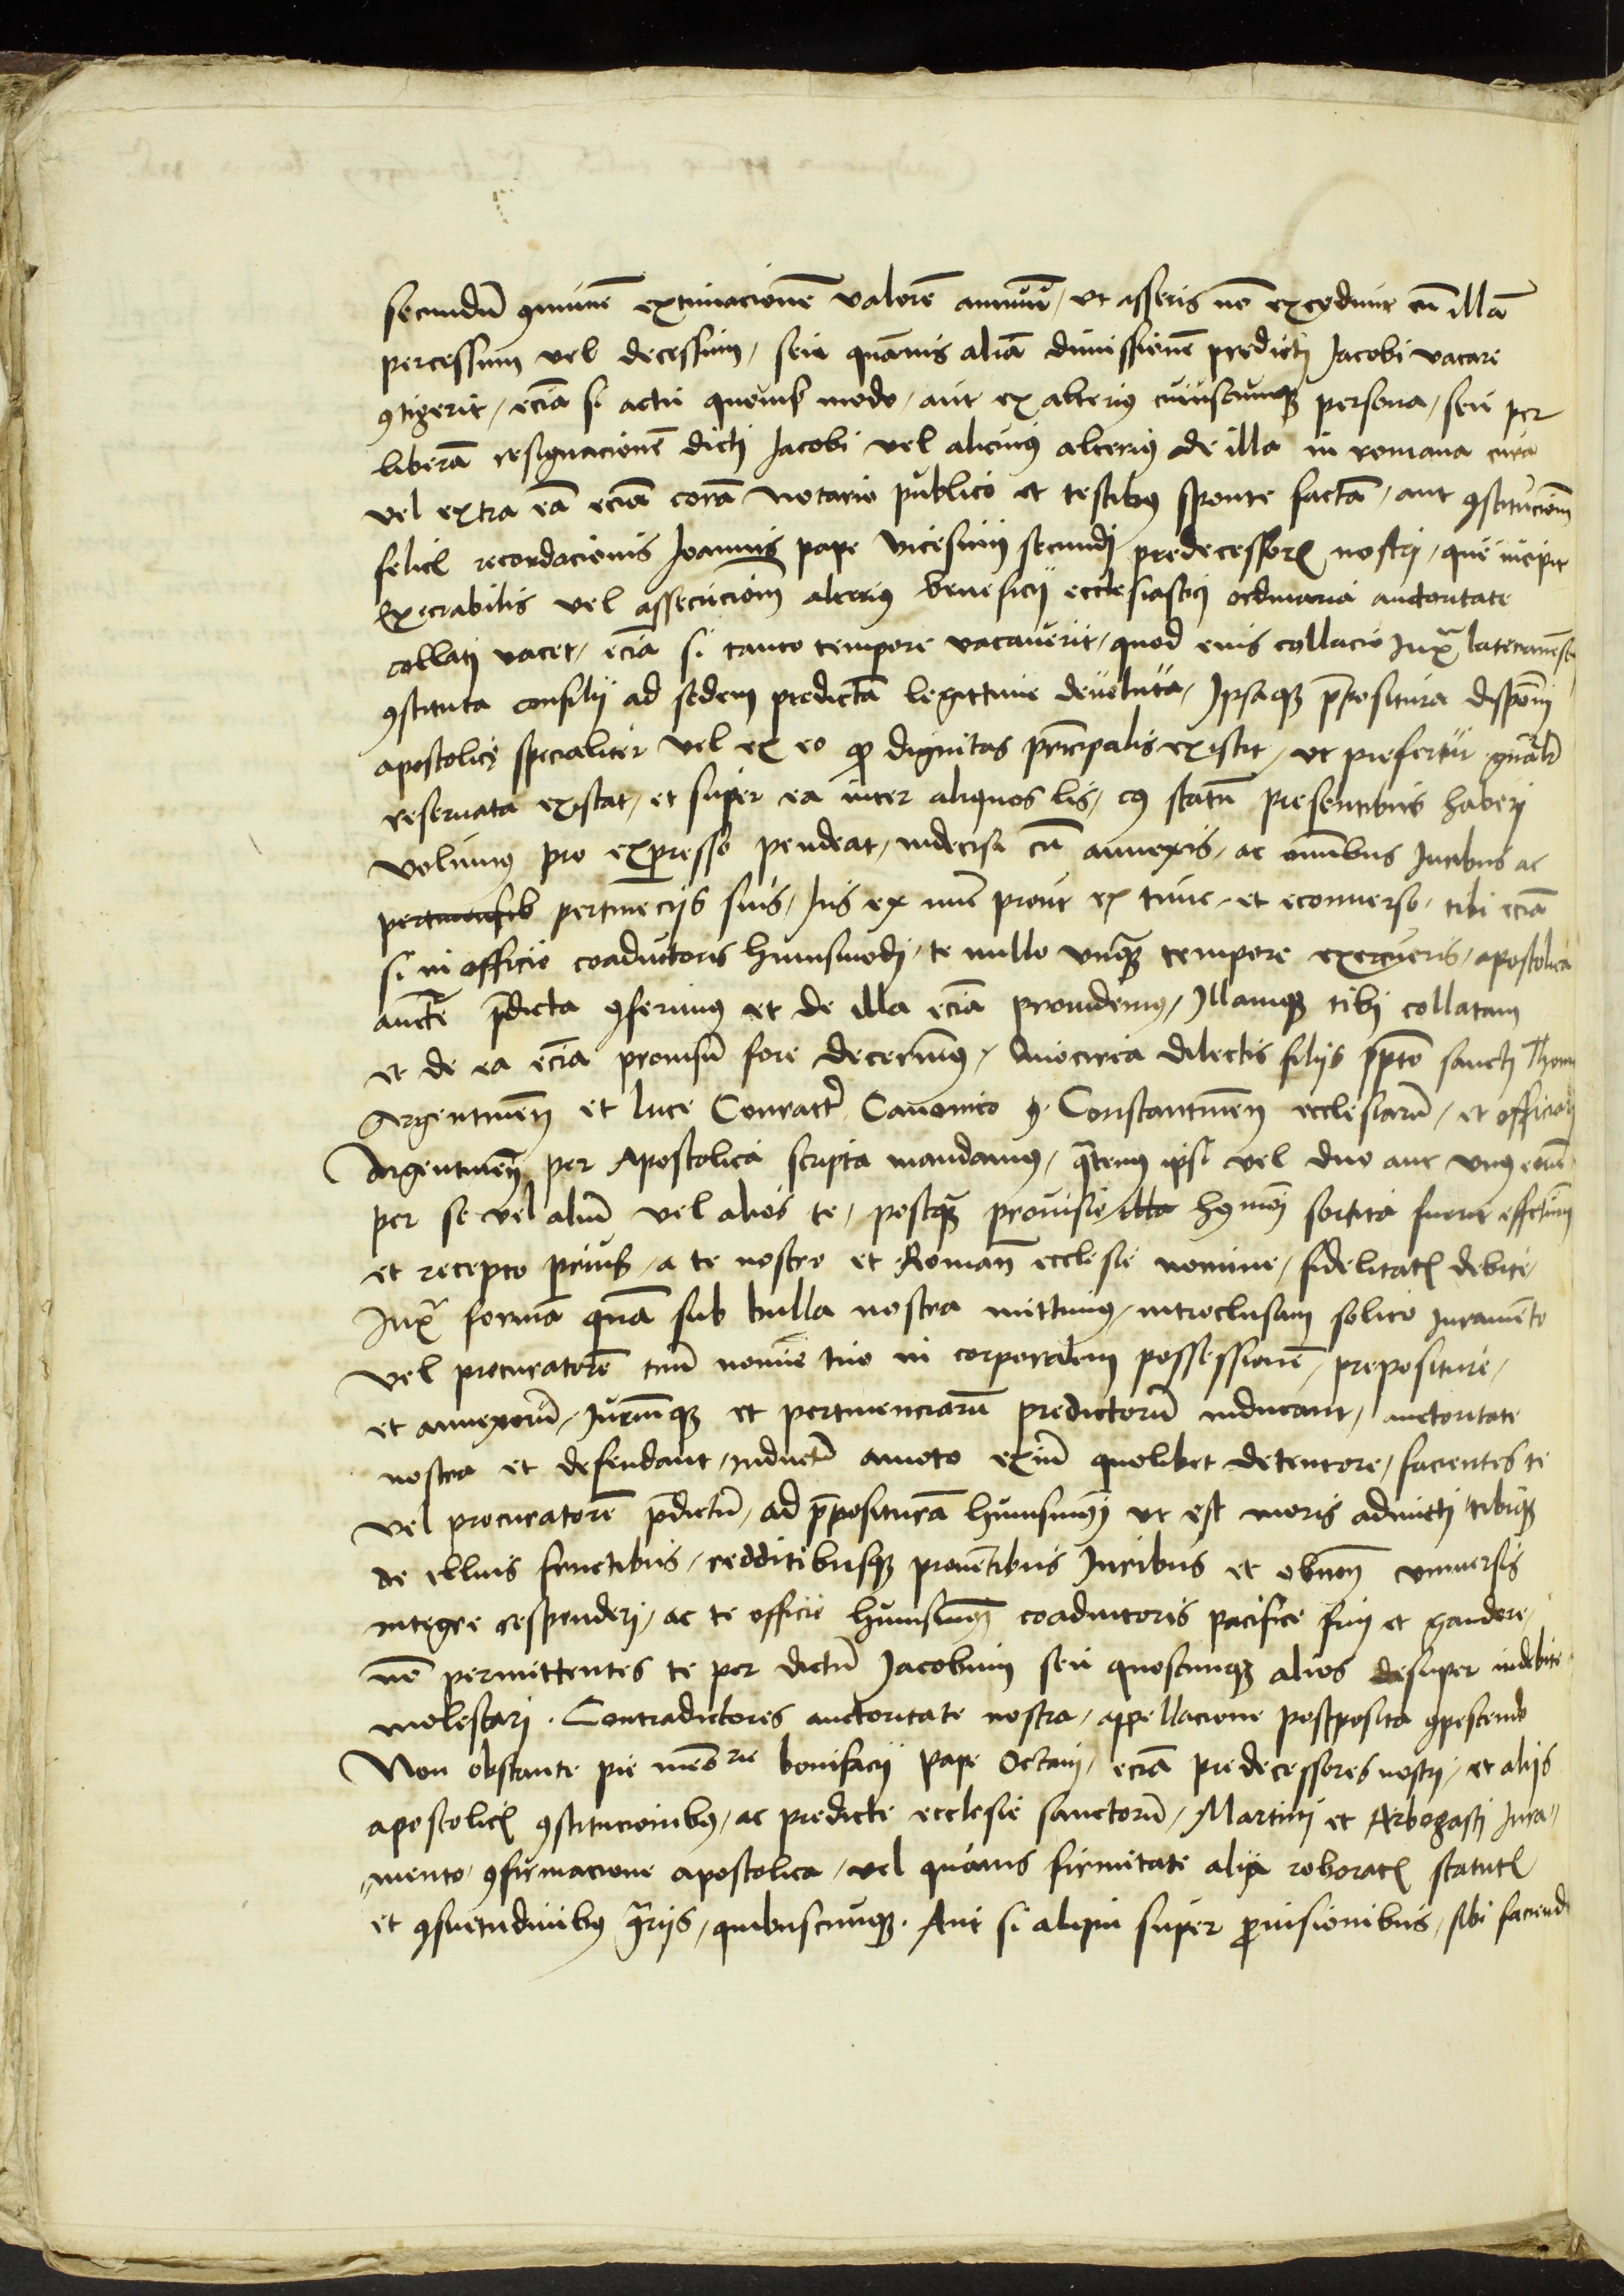 secundū ꝯmunē extimacionē valorē annuū, vt asseris nō excedunt cū illā
percessum vel decessum, seu quāuis aliā dimissionē predicti Jacobi vacare
ꝯtigerit, eciā si actu quouis modo, aut ex alterius cuiuscunqꝫ persona, seu per
liberā resignacionē dicti Jacobi vel alicuius alterius de illa in romana curia
vel extra eā eciā corā notario publico et testibus sponte factā, aut ꝯstitucionem
felicꝭ recordacionis Joannis pape vicesimi secundi predecessorꝭ nostri, que incipit
Execrabilis vel assecucionem alterius beneficij ecclesiastici ordinaria auctoritate
collati vacet, eciā si tanto tempore vacauerit, quod eius collacio Juxᵃ lateranensis
ꝯstituta consilij ad sedem predictā legittime deuoluta, Jpsaqꝫ p̄positura disponi
apostolice specialiter vel ex eo ꝙ dignitas principalis existit, vt prefertur gnālr
reseruata existat, et super ea inter aliquos lis, cuiꝯ statū presentibus haberi
volumus pro expresso pendeat, indecisa cū annexis, ac omnibus Juribus ac
pertinensib pertinecijs suis, Jus ex nunc prout ex tunc, et econuerso, tibi eciā
si in officio coadiutoris huiusmodi, te nullo vnqꝫ tempore exercueris, apostolica
aucte p̄dicta ꝯferimus et de illa eciā prouidemus, Jllamqꝫ tibi collatam
et de ea eciā prouisū fore decernimus, Quocirca dilectis filijs p̄pto sancti Thome
Argentinen̄ et luce Conratr̄ Canonico ꝯ. Constantinen̄ ecclesiarū, et officiali
Argentinen̄ per Apostolica scripta mandamus, qᵃtenus ipsi vel duo aut vnus eorū
per se vel aliū vel alios te, postqᵃꝫ prouisio illa hꝯmōi sortita fuerit effectum
et recepto prius, a te nostro et Roman̄ ecclesie nomine, fidelitatꝭ debite,
Juxᵃ formā quā sub bulla nostra mittimus, introclusam solito Juramento
vel procuratorē tuū nomīe tuo in corporalem possessionē, prepositure,
et annexorū, Juriumqꝫ et pertinenciarū predictorū inducant, auctoritate
nostra et defendant, inductū amoto exiñ quolibet detentore, facientes te
vel procuratorē p̄dictū, ad p̄posituram huiusmodi vt est moris admitti tibiqꝫ
de illius fructibus, redditibusqꝫ prouētibus Juribus et obuen̄ vniuersis
integre responderi, ac te officio huiusmodi coadiutoris pacifice frui et gaudere,
nō permittentes te per dictū Jacobum seu quoscunqꝫ alios desuper indebite
molestari. Contradictores auctoritate nostra, appellacione postposita ꝯpescendo
Non obstante pie mēorie bonifacij pape Octaui, eciā predecessores nostri, et alijs
apostolicꝭ ꝯstitucionibꝯ, ac predicte ecclesie sanctorū, Martini et Arbogasti Jura⸗
mento, ꝯfirmacione apostolica, vel quāuis firmitate alia roboratꝭ statutꝭ
et ꝯsuetudinibꝯ ꝯᵃrijs, quibuscunqꝫ. Aut si aliqui super ꝓuisionibus, sibi faciend